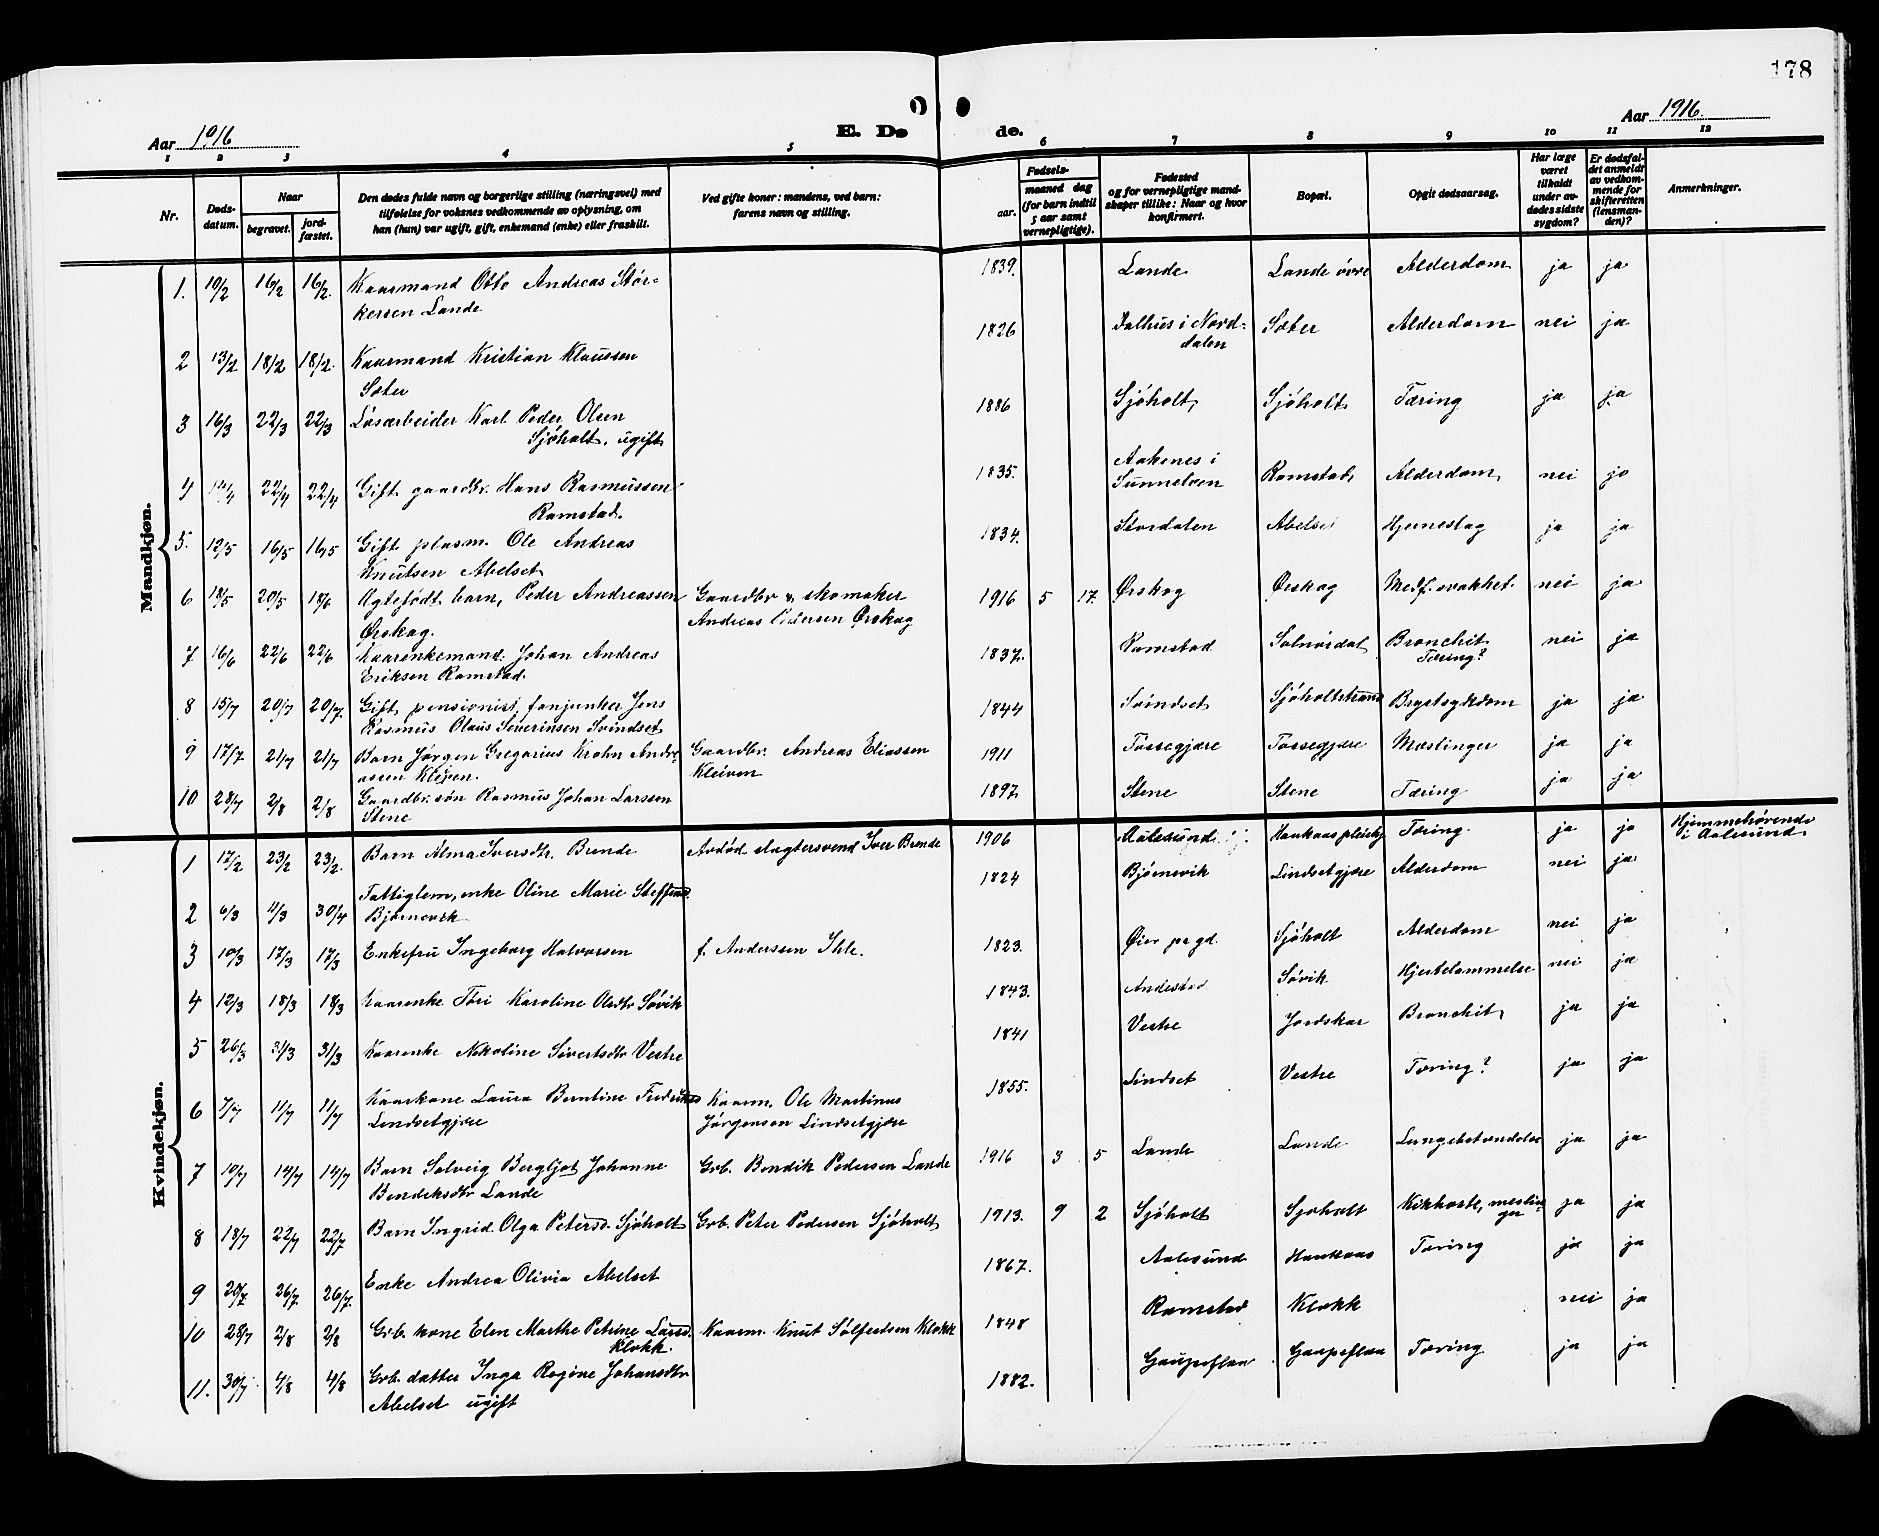 178
Aar 1916
E. Dø
de.
Aar 1916.
1 2 3 4 5 6 7 8 9 10 11 12
Nr.
Døds-
datum.
Naar
begravet.
jord-
fæstet.
Den dødes fulde navn og borgerlige stilling (næringsvei) med
tilføielse for voksnes vedkommende av oplysning, om
han (hun) var ugift, gift, enkemand (enke) eller fraskilt.
Ved gifte koner: mandens, ved barn:
farens navn og stilling.
Fødsels-
aar.
maaned dag
(for barn indtil
5 aar samt
vernepligtige).
Fødested
og for vernepligtige mand-
skaper tillike: Naar og hvor
konfirmert.
Bopæl.
Opgit dødsaarsag.
Har læge
været
tilkaldt
under av-
dødes sidste
sygdom?
Er dødsfal-
det anmeldt
av vedkom-
mende for
skifteretten
(lensman-
den)?
Anmerkninger.
Mandkjøn.
1. 10/2 16/2 16/2. Kaarmand Otto Andreas Stør- 1839. Lande Lande øvre Alderdom ja ja
kersen Lande
2 13/2 18/2 18/2. Kaarmand Kristian Klaussen 1826 Dalhus i Nord- Sæter Alderdom nei ja
Sæter dalen
3 16/3 22/3 22/3 Løsarbeider Karl Peder Olsen 1886 Sjøholt Sjøholt Tæring ja ja
Sjøholt, ugift
4 14/4 22/4 22/4 Gift gaardbr. Hans Rasmussen 1835. Aakenes i Ramstad Alderdom nei ja
Ramstad. Sunnelven
5. 12/5 16/5 16/5 Gift plasm. Ole Andreas 1834. Stordalen Abelset Hjerneslag ja ja
Knutsen Abelset
6 18/5 20/5 18/6 Ægtefødt barn, Peder Andreassen Gaardbr & skomaker 1916 5 17. Ørskog Ørskog Medf. svakhet nei ja
Ørskog. Andreas Pedersen Ørskog
7 16/6 22/6 22/6 Kaarenkemand Johan Andreas 1837. Ramstad Solnørdal Bronchit nei ja
Eriksen Ramstad. Tæring?
8 15/7 20/7 20/7. Gift pensionist, fanjunker Jens 1844 Svindset Sjøholtstrand Brystsykdom ja ja
Rasmus Olaus Severinsen Svindset
9 17/7 21/7 21/7 Barn Jørgen Gregorius Krohn Andre- Gaardbr. Andreas Eliassen 1911 Tossegjære Tossegjære Mæslinger ja ja
assen Kleiven. Kleiven
10 28/7 2/8 2/8 Gaardbr. søn Rasmus Johan Larssen 1897. Stene Stene Tæring ja ja
Stene
Kvindekjøn.
1 17/2 23/2 23/2. Barn Alma Iversdtr. Brende Avdød slagtersvend Iver Brende 1906 Aalesund Haukaas pleiehj. Tæring. ja ja Hjemmehørende
i Aalesund.
2 6/3 11/3 30/4 Fattiglem, enke Oline Marie Steffensd. 1824 Bjørnevik Lindsetgjære Alderdom nei ja
Bjørnevik
3 10/3 17/3 17/3 Enkefru Ingeborg Halvorsen f. Anderssen Ihle. 1823. Øier pr gd. Sjøholt Alderdom nei ja
4 12/3 18/3 18/3 Kaarenke Tori Karoline Olsdtr Søvik 1843. Andestad Søvik Hjertelammelse nei ja
5 26/3 31/3 31/3 Kaarenke Nikoline Sivertsdtr Vestre 1841 Vestre Jordskar Bronchit ja ja
6 7/7 11/7 11/7 Kaarkone Laura Berntine Fredriksd Kaarm. Ole Martinus 1855. Lindset Vestre Tæring? ja ja
Lindsetgjære Jørgensen Lindsetgjære
7 10/7 14/7 14/7 Barn Solveig Bergljot Johanne Grb. Bendik Pedersen Lande 1916 3 5 Lande Lande Lungebetændelse ja ja
Bendiksdtr Lande
8 18/7 22/7 22/7 Barn Ingrid Olga Petersd. Sjøholt Grb. Peter Pedersen Sjøholt 1913. 9 2 Sjøholt Sjøholt Kikhoste, meslin- ja ja
ger
9 20/7 26/7 26/7. Enke Andrea Olivia Abelset 1867. Aalesund Haukaas Tæring ja ja
10 28/7 2/8 2/8 Grb. kone Elen Marthe Petrine Larsd. Kaarm. Knut Sølfestsen Klokk 1848 Ramstad Klokk nei ja
Klokk.
11. 30/7 4/8 4/8 Grb. datter Inga Regine Johansdtr 1882. Gaupeflaa Gaupeflaa Tæring ja ja
Abelset ugift